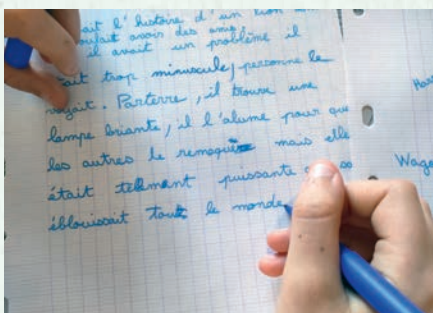 ait l'histoire d'un lion
oulait avois des amis,
il avait un problème il
était trop minuscule, personne le
voyait. Parterre, il trouve une
lampe briante, il l'alume pour que
les autres le remaquè mais elle
était tellment puissante
éblouissait tout le monde
Wage